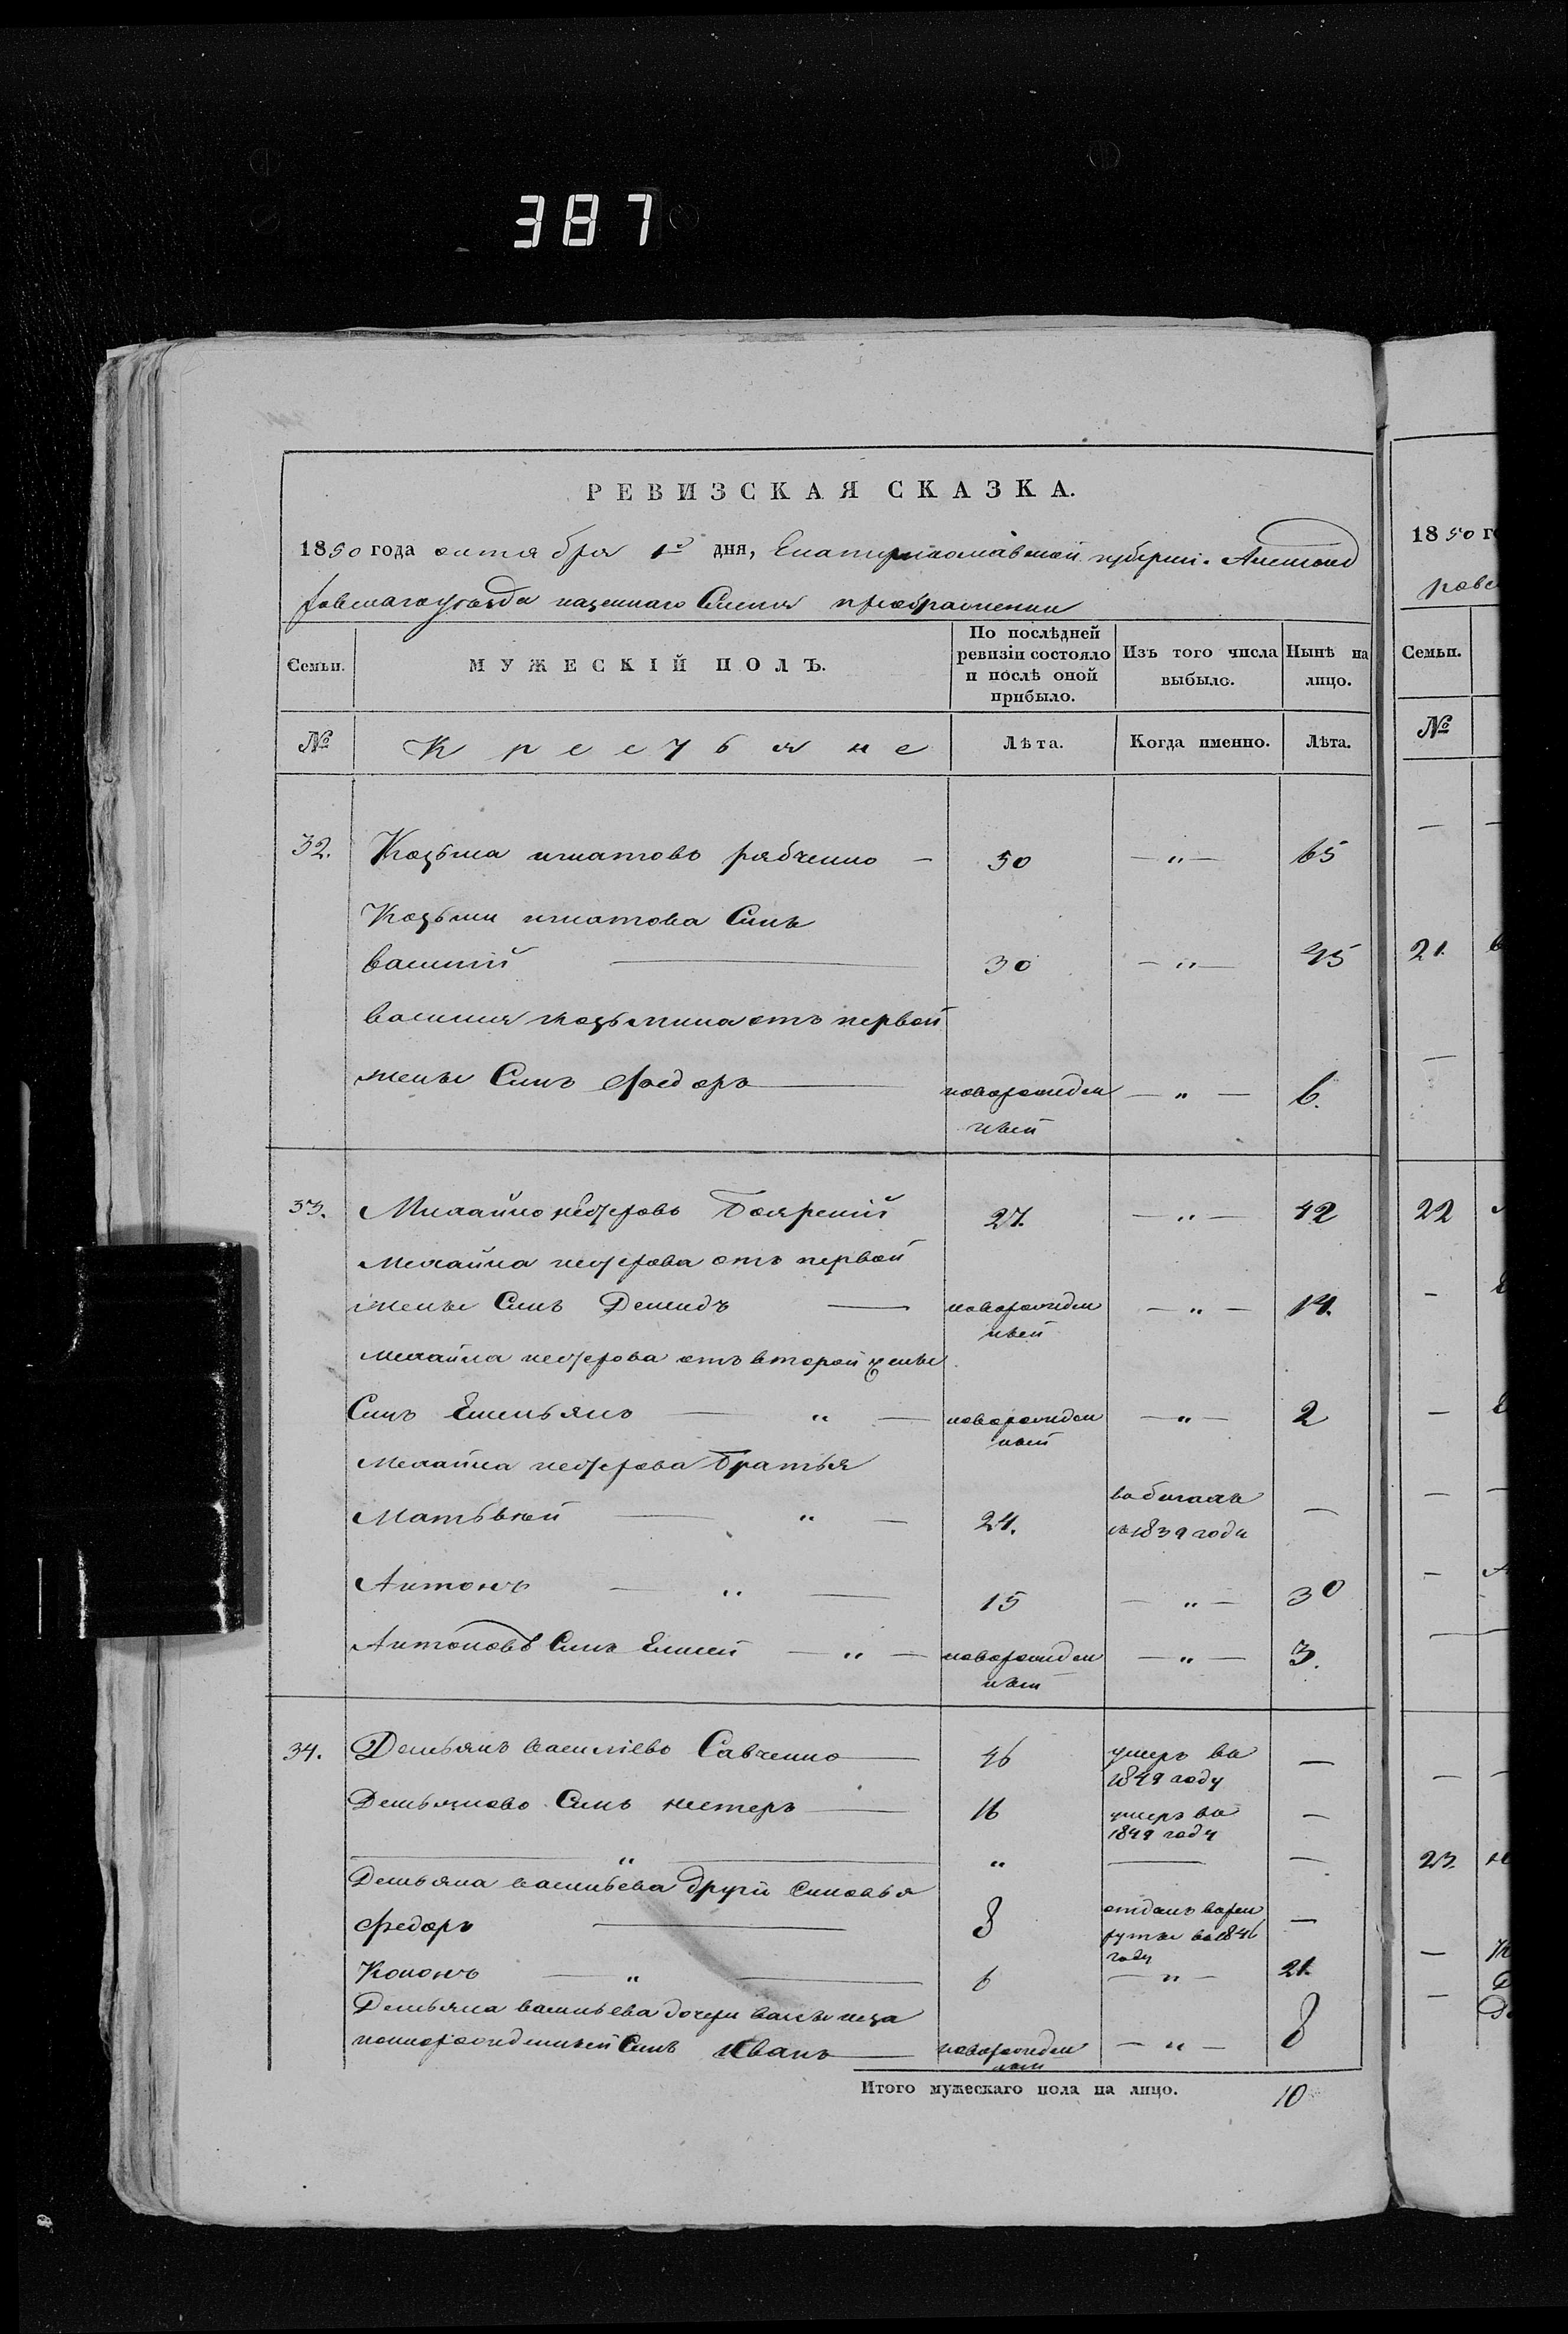 387
РЕВИЗСКАЯ СКАЗКА.
1850 года октября 1го дня, Екатеринославской губерніи. Александ
ровскаго уезда казеннаго Селенія преображенки
Семьи.
МУЖЕСКІЙ ПОЛЪ.
По послѣдней ревизіи состояло и послѣ оной прибыло.
Изъ того числа выбыло.
Нынѣ на лицо.
№ Крестьяне Лѣта. Когда именно. Лѣта.
32. Козьма игнатовъ рябченко — 50 — „ — 65
Козьми игнатова Синъ
василій — 30 — „ — 45
василия козьмина отъ первой
жены Синъ федоръ — новорожден ный — „ — 6.
33. Михайло несторовъ Боярскій 27. — „ — 42
Михайла несторова отъ первой
жены Синъ Демидъ — новорожден ный — „ — 14.
михайла несторова отъ второй жены
Синъ Емельянъ — „ — новорожден ный — „ — 2
Михайла несторова Братья
Матьвѣй — „ — 24. въ 1839 года —
Антонъ — „ — 15 — „ — 30
Антоновъ Синъ — „ — новорожден ный — „ — 3.
34. Демьянъ василіевъ Савченко — 46 умеръ въ 1849 году —
Демьяновъ Синъ нестеръ — 16 умеръ въ 1849 году —
— „ — „ — —
Демьяна васильева други синовья
федоръ — 8 отданъ в рек руты въ 1846 году —
Кононъ — „ — 6 — „ — 21.
Демьяна васильева дочери
Синъ Иванъ — новорожден ный — „ — 8
Итого мужескаго пола на лицо. 10
1850 го
ровс
Семьи.
№
21.
22
23